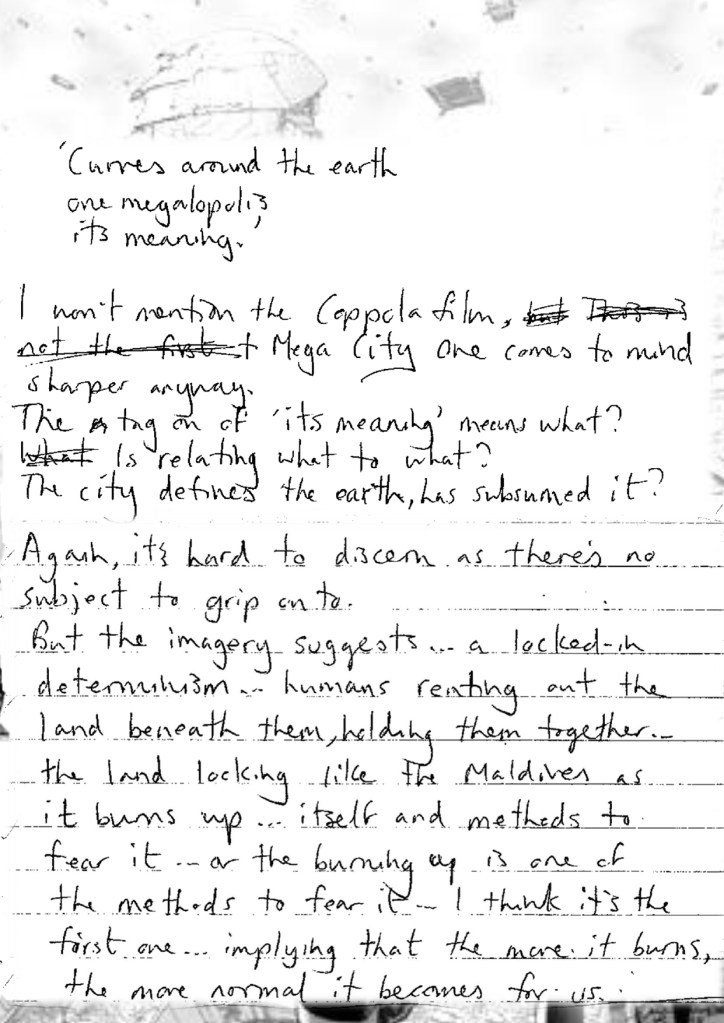 'Curves around the earth
one megalopolis,
its meaning.'
I won't mention the Coppola film, but This is
not the first t Mega City One comes to mind
sharper anyway.
The tag on of 'its meaning' means what?
What Is relating what to what?
The city defines the earth, has subsumed it?
Again, it's hard to discern as there's no
subject to grip onto.
But the imagery suggests... a locked-in
determinism... humans renting out the
land beneath them, holding them together...
the land locking like The Maldives as
it burns up... itself and methods to
fear it... or the burning up is one of
the methods to fear it... I think it's the
first one... implying that the more it burns,
the more normal it becomes for us.